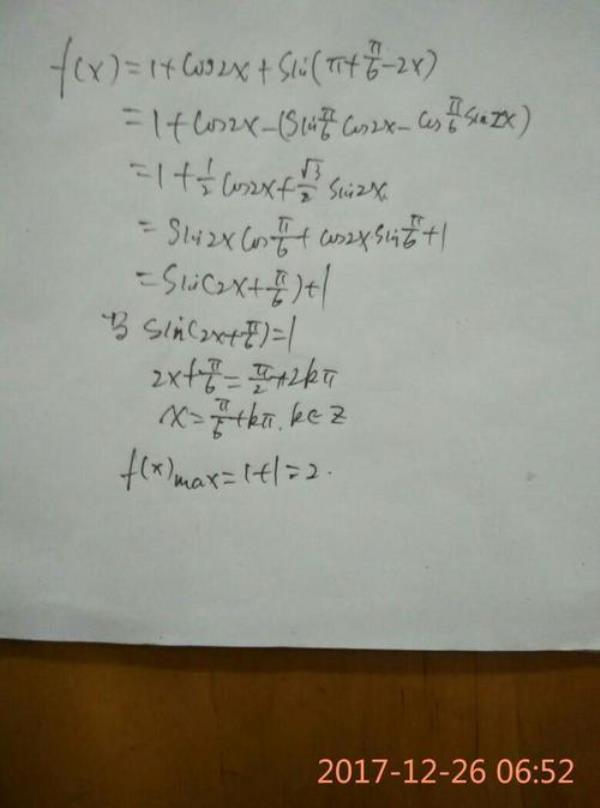 f(x)=1+cos2x+sin(π+π/6-2x)
=1+cos2x-(sinπ/6 cos2x-cosπ/6 sin2x)
=1+1/2 cos2x+√3/2 sin2x
=sin2x cosπ/6+cos2x·sinπ/6+1
=sin(2x+π/6)+1
sin(2x+π/6)=1
2x+π/6=π/2+2kπ
x=π/6+kπ, k∈Z
f(x)max=1+1=2.
2017-12-26 06:52